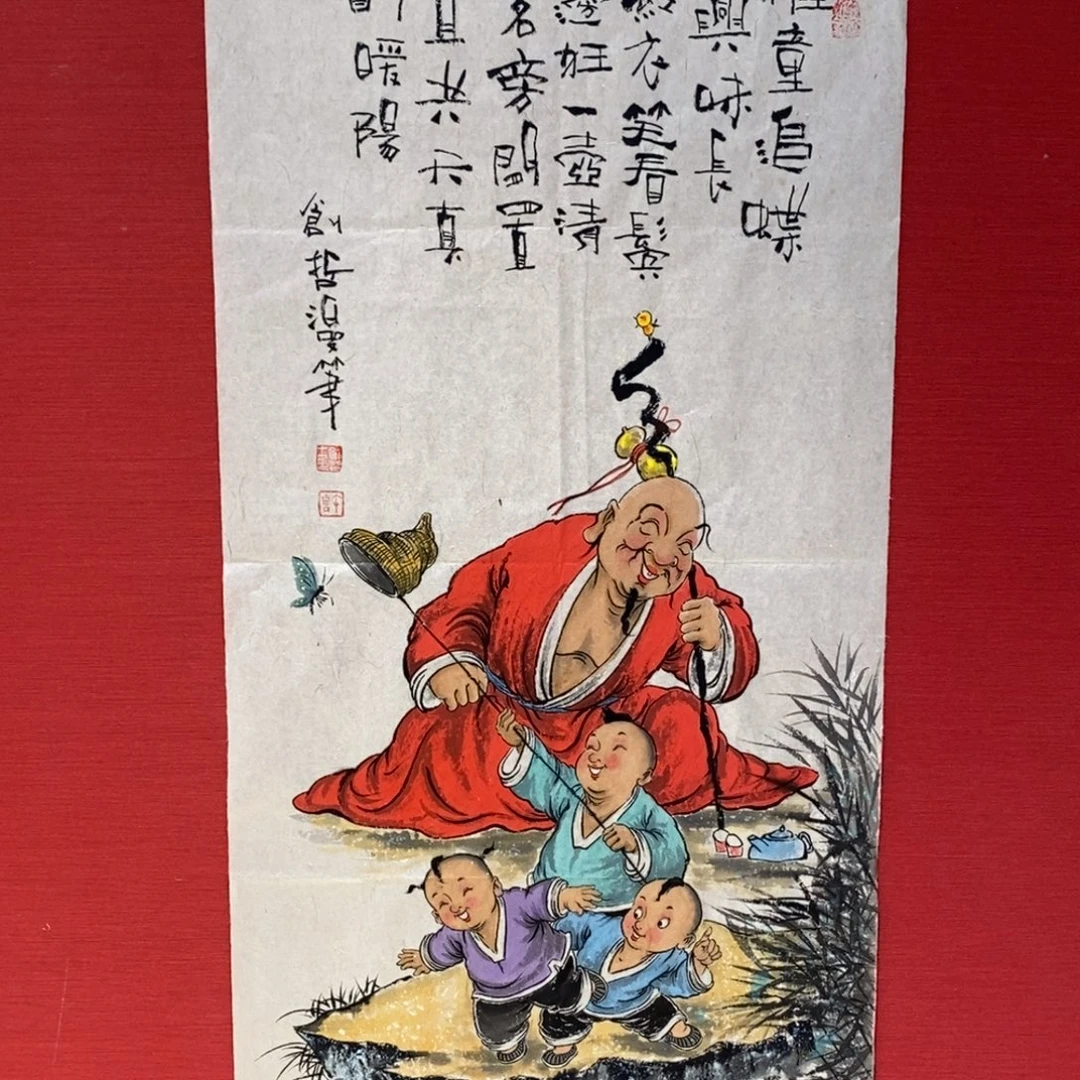 童追蝶
興味長
衣笑看鬢
邊狂一壺清
茗旁閒置
共天真
暖陽
創哲漫筆